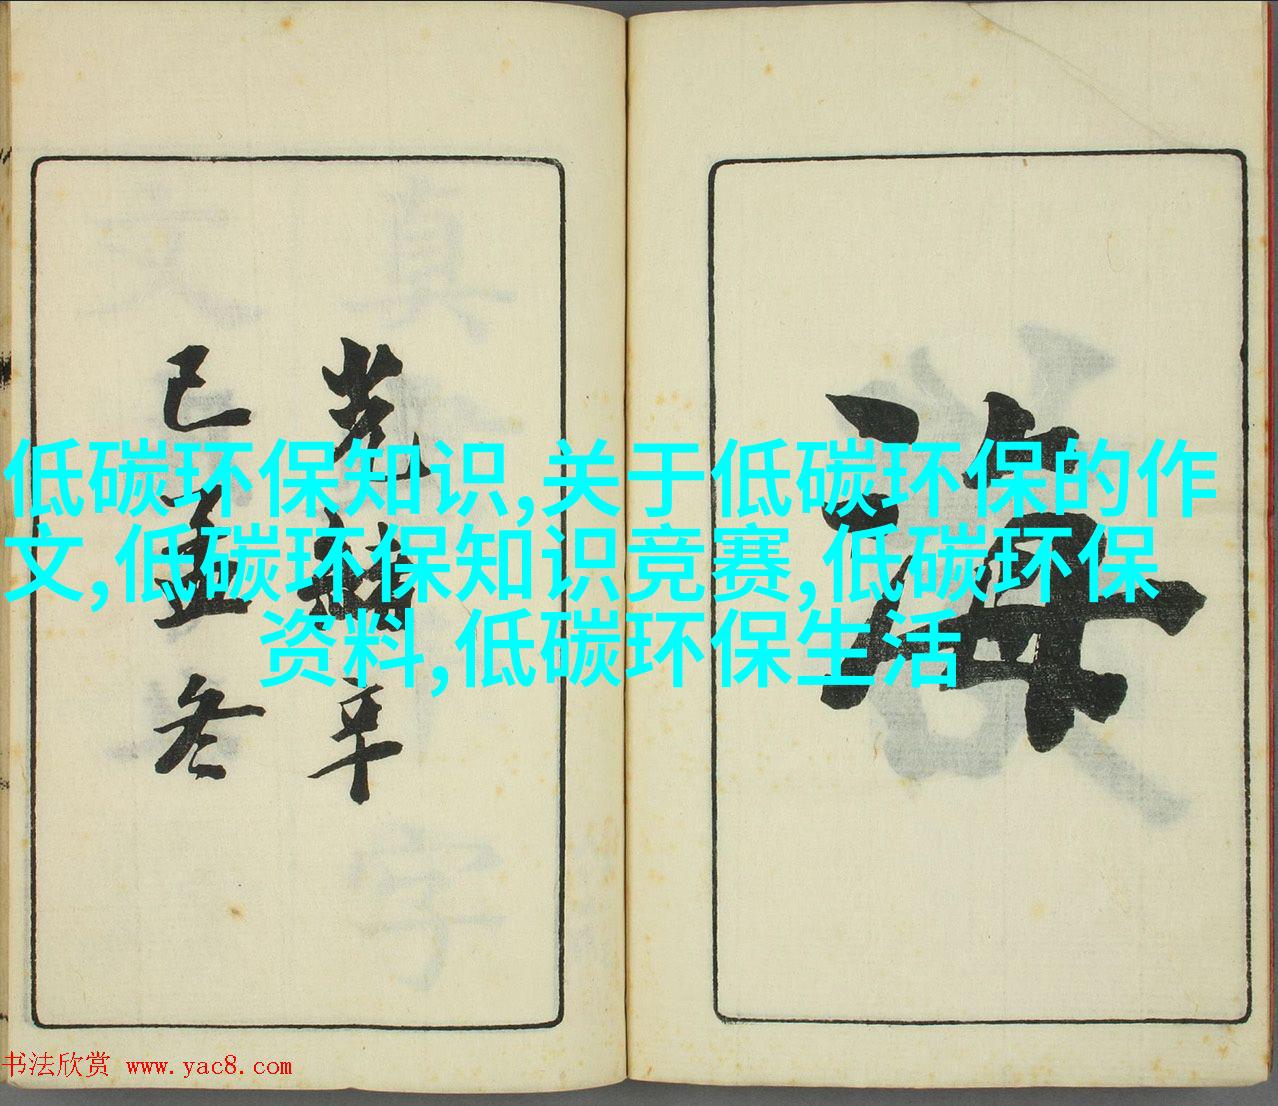 海
光緒辛
巳孟冬
低碳环保知识,关于低碳环保的作
文,低碳环保知识竞赛,低碳环保
资料,低碳环保生活
书法欣赏 www.yac8.com